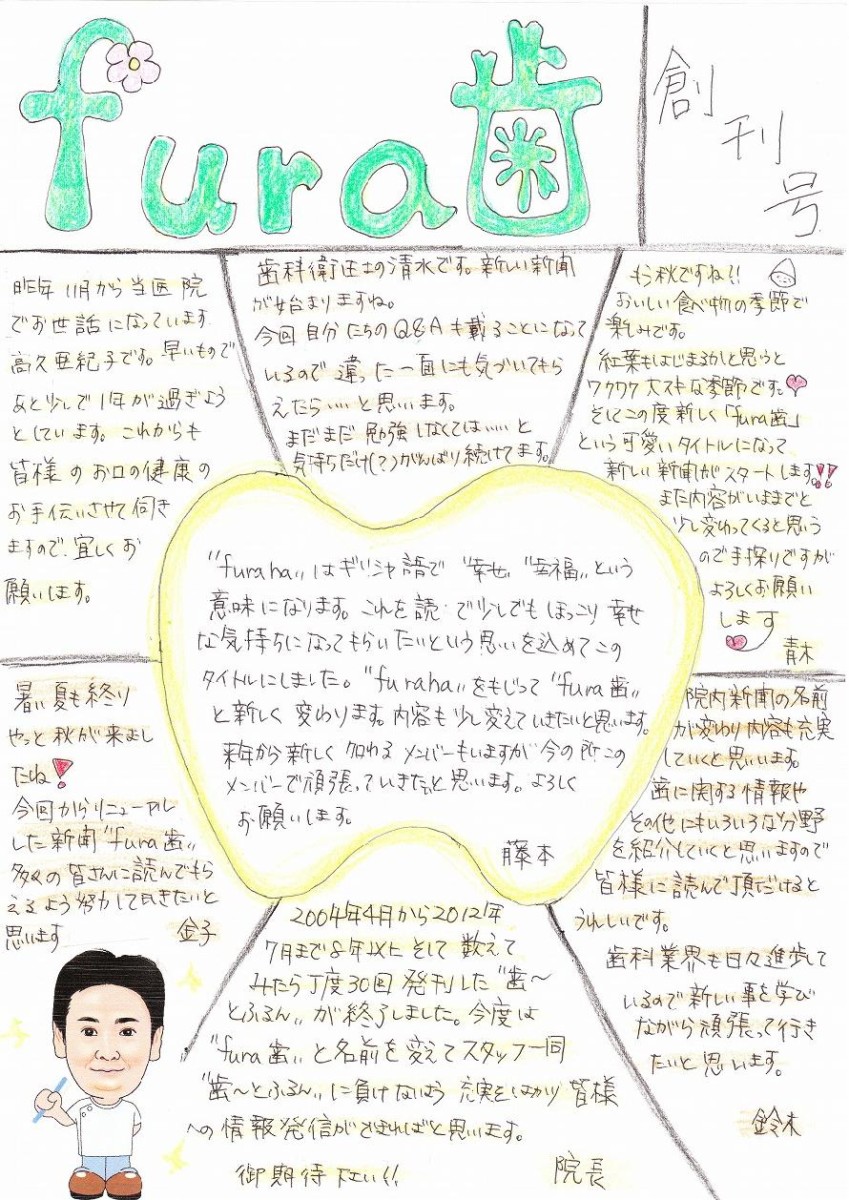 fura歯
創刊号
昨年11月から当医院
でお世話になっています
高久亜紀子です。早いもので
あと少しで1年が過ぎよう
としています。これからも
皆様のお口の健康の
お手伝いさせて頂き
ますので、宜しくお
願いします。
歯科衛生士の清水です。新しい新聞
が始まりますね。
今回自分たちのQ&Aも載ることになって
いるので違った一面にも気づいてもら
えたら……と思います。
まだまだ勉強しなくては……と
気持ちだけ(?)がんばり続けてます。
もう秋ですね!!
おいしい食べ物の季節で
楽しみです。
紅葉もはじまるかと思うと
ワクワク大スキな季節です。
そしてこの度新しく「fura歯」
という可愛いタイトルになって
新しい新聞がスタートします。!!
まだ内容がいままでと
少し変わってくると思う
ので手探りですが
よろしくお願い
します
青木
"furaha"はギリシャ語で"幸せ""幸福"という
意味になります。これを読んで少しでもほっこり幸せ
な気持ちになってもらいたいという思いを込めてこの
タイトルにしました。"furaha"をもじって"fura歯"
と新しく変わります。内容も少し変えていきたいと思います。
来年から新しく加わるメンバーもいますが今の所この
メンバーで頑張っていきたいと思います。よろしく
お願いします。
藤本
暑い夏も終り
やっと秋が来まし
たね!
今回からリニューアル
した新聞"fura歯"
多くの皆さんに読んでもら
えるよう努力して行きたいと
思います
金子
院内新聞の名前
が変わり内容も充実
していくと思います。
歯に関する情報や
その他にもいろいろな分野
を紹介していくと思いますので
皆様に読んで頂だけると
うれしいです。
歯科業界も日々進歩して
いるので新しい事を学び
ながら頑張って行き
たいと思います。
鈴木
2004年4月から2012年
7月まで8年以上そして数えて
みたら丁度30回発刊した"歯〜
とふるん"が終了しました。今度は
"fura歯"と名前を変えてスタッフ一同
"歯〜とふるん"に負けないよう充実をはかり皆様
への情報発信ができればと思います。
御期待下さい!!
院長